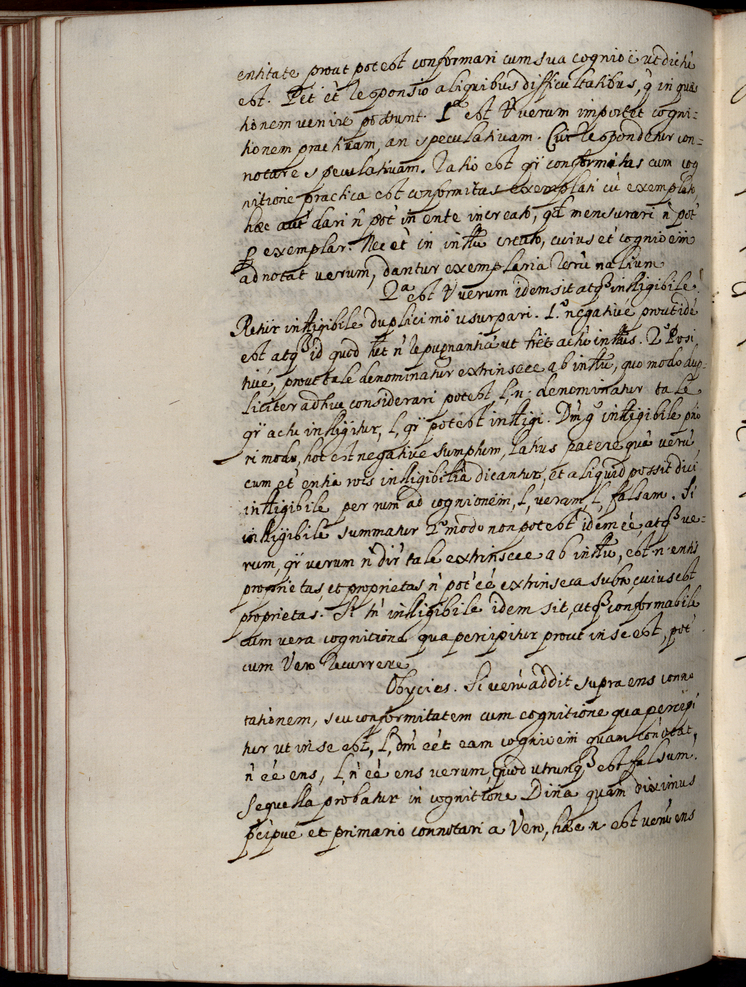 entitate prout potest conformari cum sua cognioē ut dictū
est. Pet et responsio aliquibus difficultatibus, q̄ in quæs
tionem venire possunt. 1ª est V verum importet cogni=
tionem practicam, an speculativam. Cui respondetur con=
notare speculativam. Ratio est qr̄ conformitas cum cog
nitione practica est conformitas exemplati cū exemplari
hæc aut dari n̄ pot in ente increato, qd mensurari n̄ pot
p exemplar. Nec et in intu creato, cuius et cognioēm
adnotat verum, dantur exemplaria rerū naturalium
2ª est V verum idem sit atq̨ intligibile.
Retur intligibile duplici mō usurpari. 1º negative prout idē
est atq̨ id quod het n̄ repugnantiā ut tiēt actio intūs. 2º Posi
tivé, prout tale denominatur extrinsece ab intu, quo modo dup=
liciter adhuc considerari potest l, n, denominatur tale
qr̄ actu intligitur, l, qr̄ potest intligi. Dm̄ gº intligibile prio
ri modo, hoc est negative sumptum, latius patere quā verū
cum et entia rōis intligibilia dicantur, et aliquid possit dici
intligibile per rum ad cognionēm, l, veram, l, falsam. Si
intligibile summatur 2º modo non potest idem ēē, atq̨ ve=
rum, qr̄ verum n̄ dir tale extrinsece ab intu, est n. entis
proprietas, et proprietas n̄ pot ēē extrinseca subto, cuius est
proprietas. Si tn̄ intligibile idem sit, atq̨ conformabile
cum vera cognitione qua percipitur prout in se est, pot
cum Vero recurrere
Obycies. Si verū addit supra ens conno
tationem, seu conformitatem cum cognitione qua percipi
tur ut in se est, l, dm̄ ēēt eam cognioēm quam conotat,
n̄ ēē ens, l, n̄ ēē ens verum, quod utrumq̨ est falsum.
Sequella probatur in cognitione Dina quam diximus
p̄cipué et primario connotari a Vero, hæc n. est verū ens